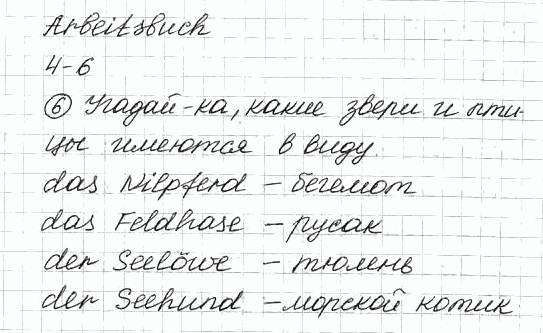 Arbeitsbuch
4-6
⑥ Угадай-ка, какие звери и пти-
цы имеются в виду.
das Nilpferd – бегемот
das Feldhase – русак
der Seelöwe – тюлень
der Seehund – морской котик